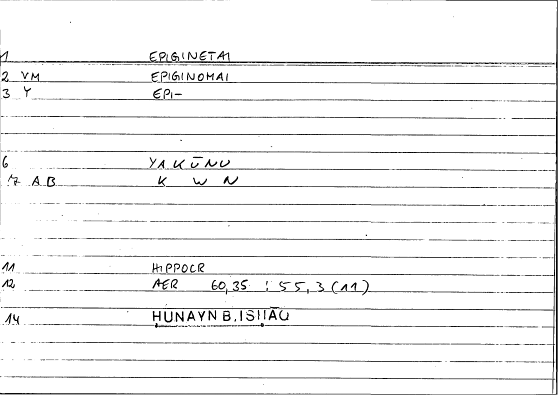 1 EPIGINETAI
2 VM EPIGINOMAI
3 Y EPI-
6 YAKŪNU
7 AB K W N
11 HIPPOCR
12 AER 60,35 : 55,3 (11)
14 ḤUNAYN B. ISḤĀQ